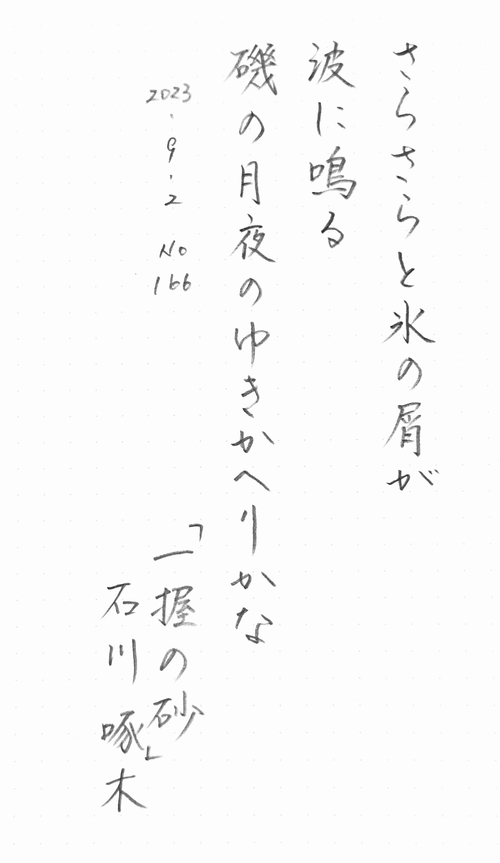 さらさらと氷の屑が
波に鳴る
磯の月夜のゆきかへりかな
2023.9.2 No 166
「一握の砂」
石川啄木